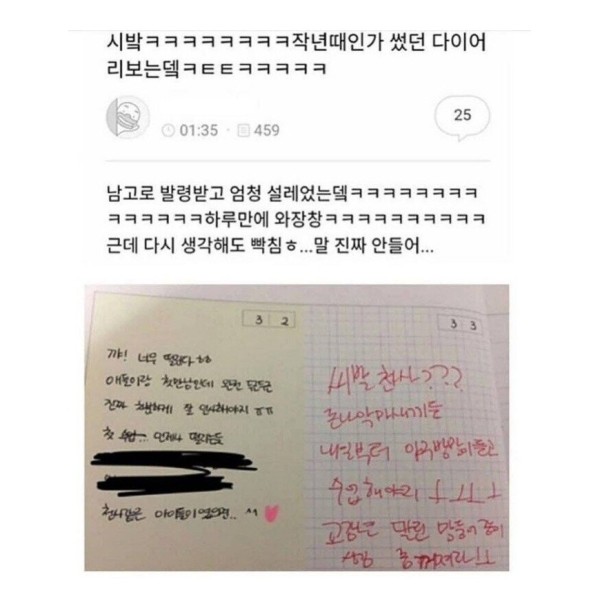 시밬ㅋㅋㅋㅋㅋㅋㅋㅋ작년때인가 썼던 다이어
리보는뎈ㅋㅌㅌㅋㅋㅋㅋㅋ
01:35 · 459
25
남고로 발령받고 엄청 설레었는뎈ㅋㅋㅋㅋㅋㅋㅋ
ㅋㅋㅋㅋㅋㅋ하루만에 와장창ㅋㅋㅋㅋㅋㅋㅋㅋㅋㅋㅋ
근데 다시 생각해도 빡침ㅎ...말 진짜 안들어...
3 2
꺄! 너무 떨린다 ㅎㅎ
애들이랑 첫만남인데 완전 두근두근
진짜 행복하게 잘 인사해야지 ㅠㅠ
첫 수업... 언제나 떨리는듯
천사같은 아이들이었으면.. ^^
3 3
씨발 천사???
존나 악마새끼들
내일부터 야구방망이들고
수업해야지 ㅗㅗㅜㅗ
고정은 말린 망둥어 좋이